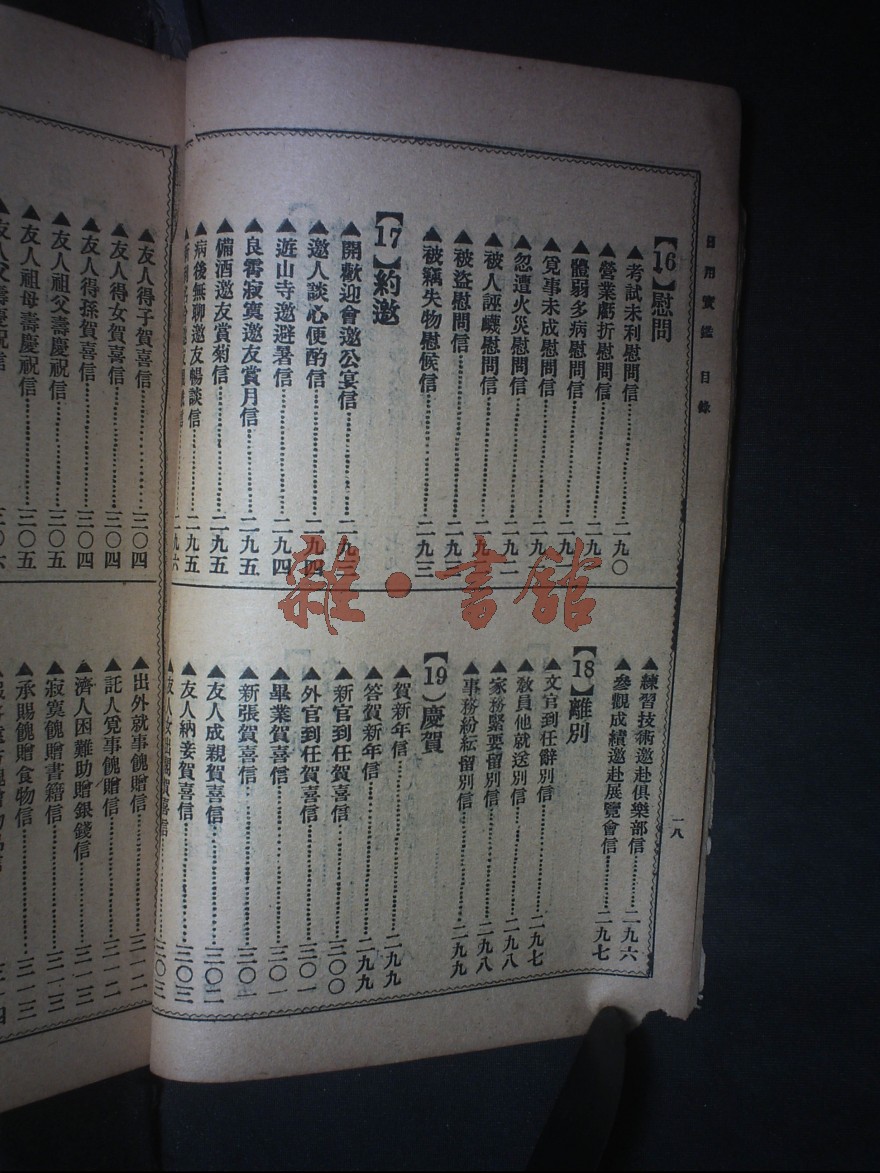 日用寶鑑 目錄
一八
【16】慰問
▲考試未利慰問信…………二九〇
▲營業虧折慰問信…………二九
▲體弱多病慰問信…………二九
▲覓事未成慰問信…………二九
▲忽遭火災慰問信…………二九二
▲被人誣衊慰問信…………二九
▲被盜慰問信…………二九三
▲被竊失物慰候信…………二九三
【17】約邀
▲開歡迎會邀公宴信…………二九三
▲邀人談心便酌信…………二九四
▲遊山寺邀避暑信…………二九四
▲良霄寂寞邀友賞月信…………二九五
▲備酒邀友賞菊信…………二九五
▲病後無聊邀友暢談信…………二九五
二九六
▲練習技術邀赴俱樂部信…………二九六
▲參觀成績邀赴展覽會信…………二九七
【18】離別
▲文官到任辭別信…………二九七
▲敎員他就送別信…………二九八
▲家務緊要留別信…………二九八
▲事務紛紜留別信…………二九九
【19】慶賀
▲賀新年信…………二九九
▲答賀新年信…………二九九
▲新官到任賀喜信…………三〇〇
▲外官到任賀喜信…………三〇一
▲畢業賀喜信…………三〇一
▲新張賀喜信…………三〇一
▲友人成親賀喜信…………三〇二
▲友人納妾賀喜信…………三〇三
▲友人女出閣賀喜信…………三〇三
▲友人得子賀喜信…………三〇四
▲友人得女賀喜信…………三〇四
▲友人得孫賀喜信…………三〇四
▲友人祖父壽慶祝信…………三〇五
▲友人祖母壽慶祝信…………三〇五
▲友人父壽慶祝信…………三〇六
▲出外就事餽贈信…………三一二
▲託人覓事餽贈信…………三一二
▲濟人困難助贈銀錢信…………三一三
▲寂寞餽贈書籍信…………三一三
▲承賜餽贈食物信…………三一三
雜·書館